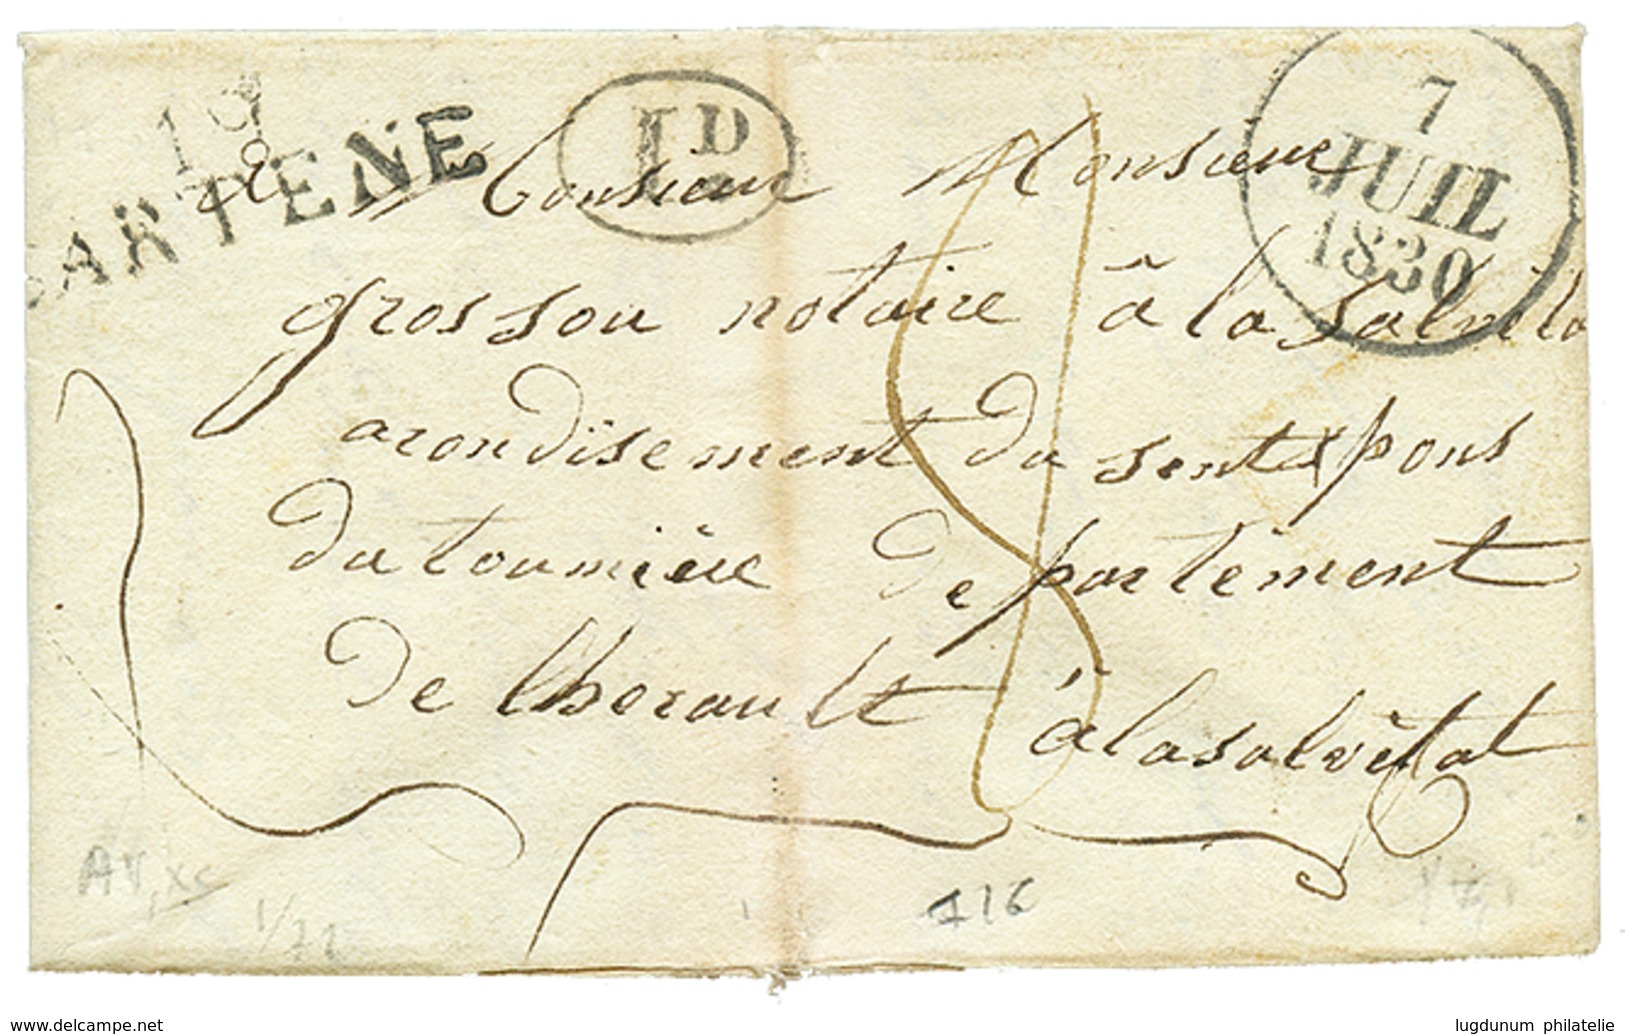 19
SARTENE
1D
7
JUIL
1830
a Monsieur Monsieur
grosson notaire â la Salvèta
arondisement du sent pons
du toumière departèment
de lherault à la salvètat
716
1/72
www.delcampe.net
lugdunum philatelie